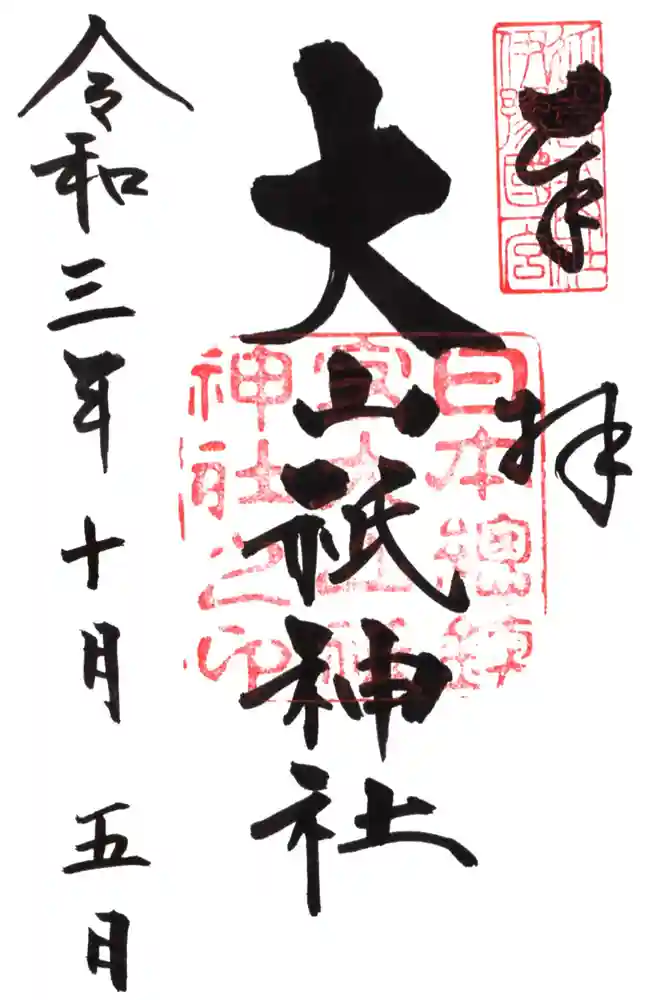 奉拝
大山祇神社
令和三年十月五日
日本總鎮
守大山祇
神社之印
伊豫国
一宮